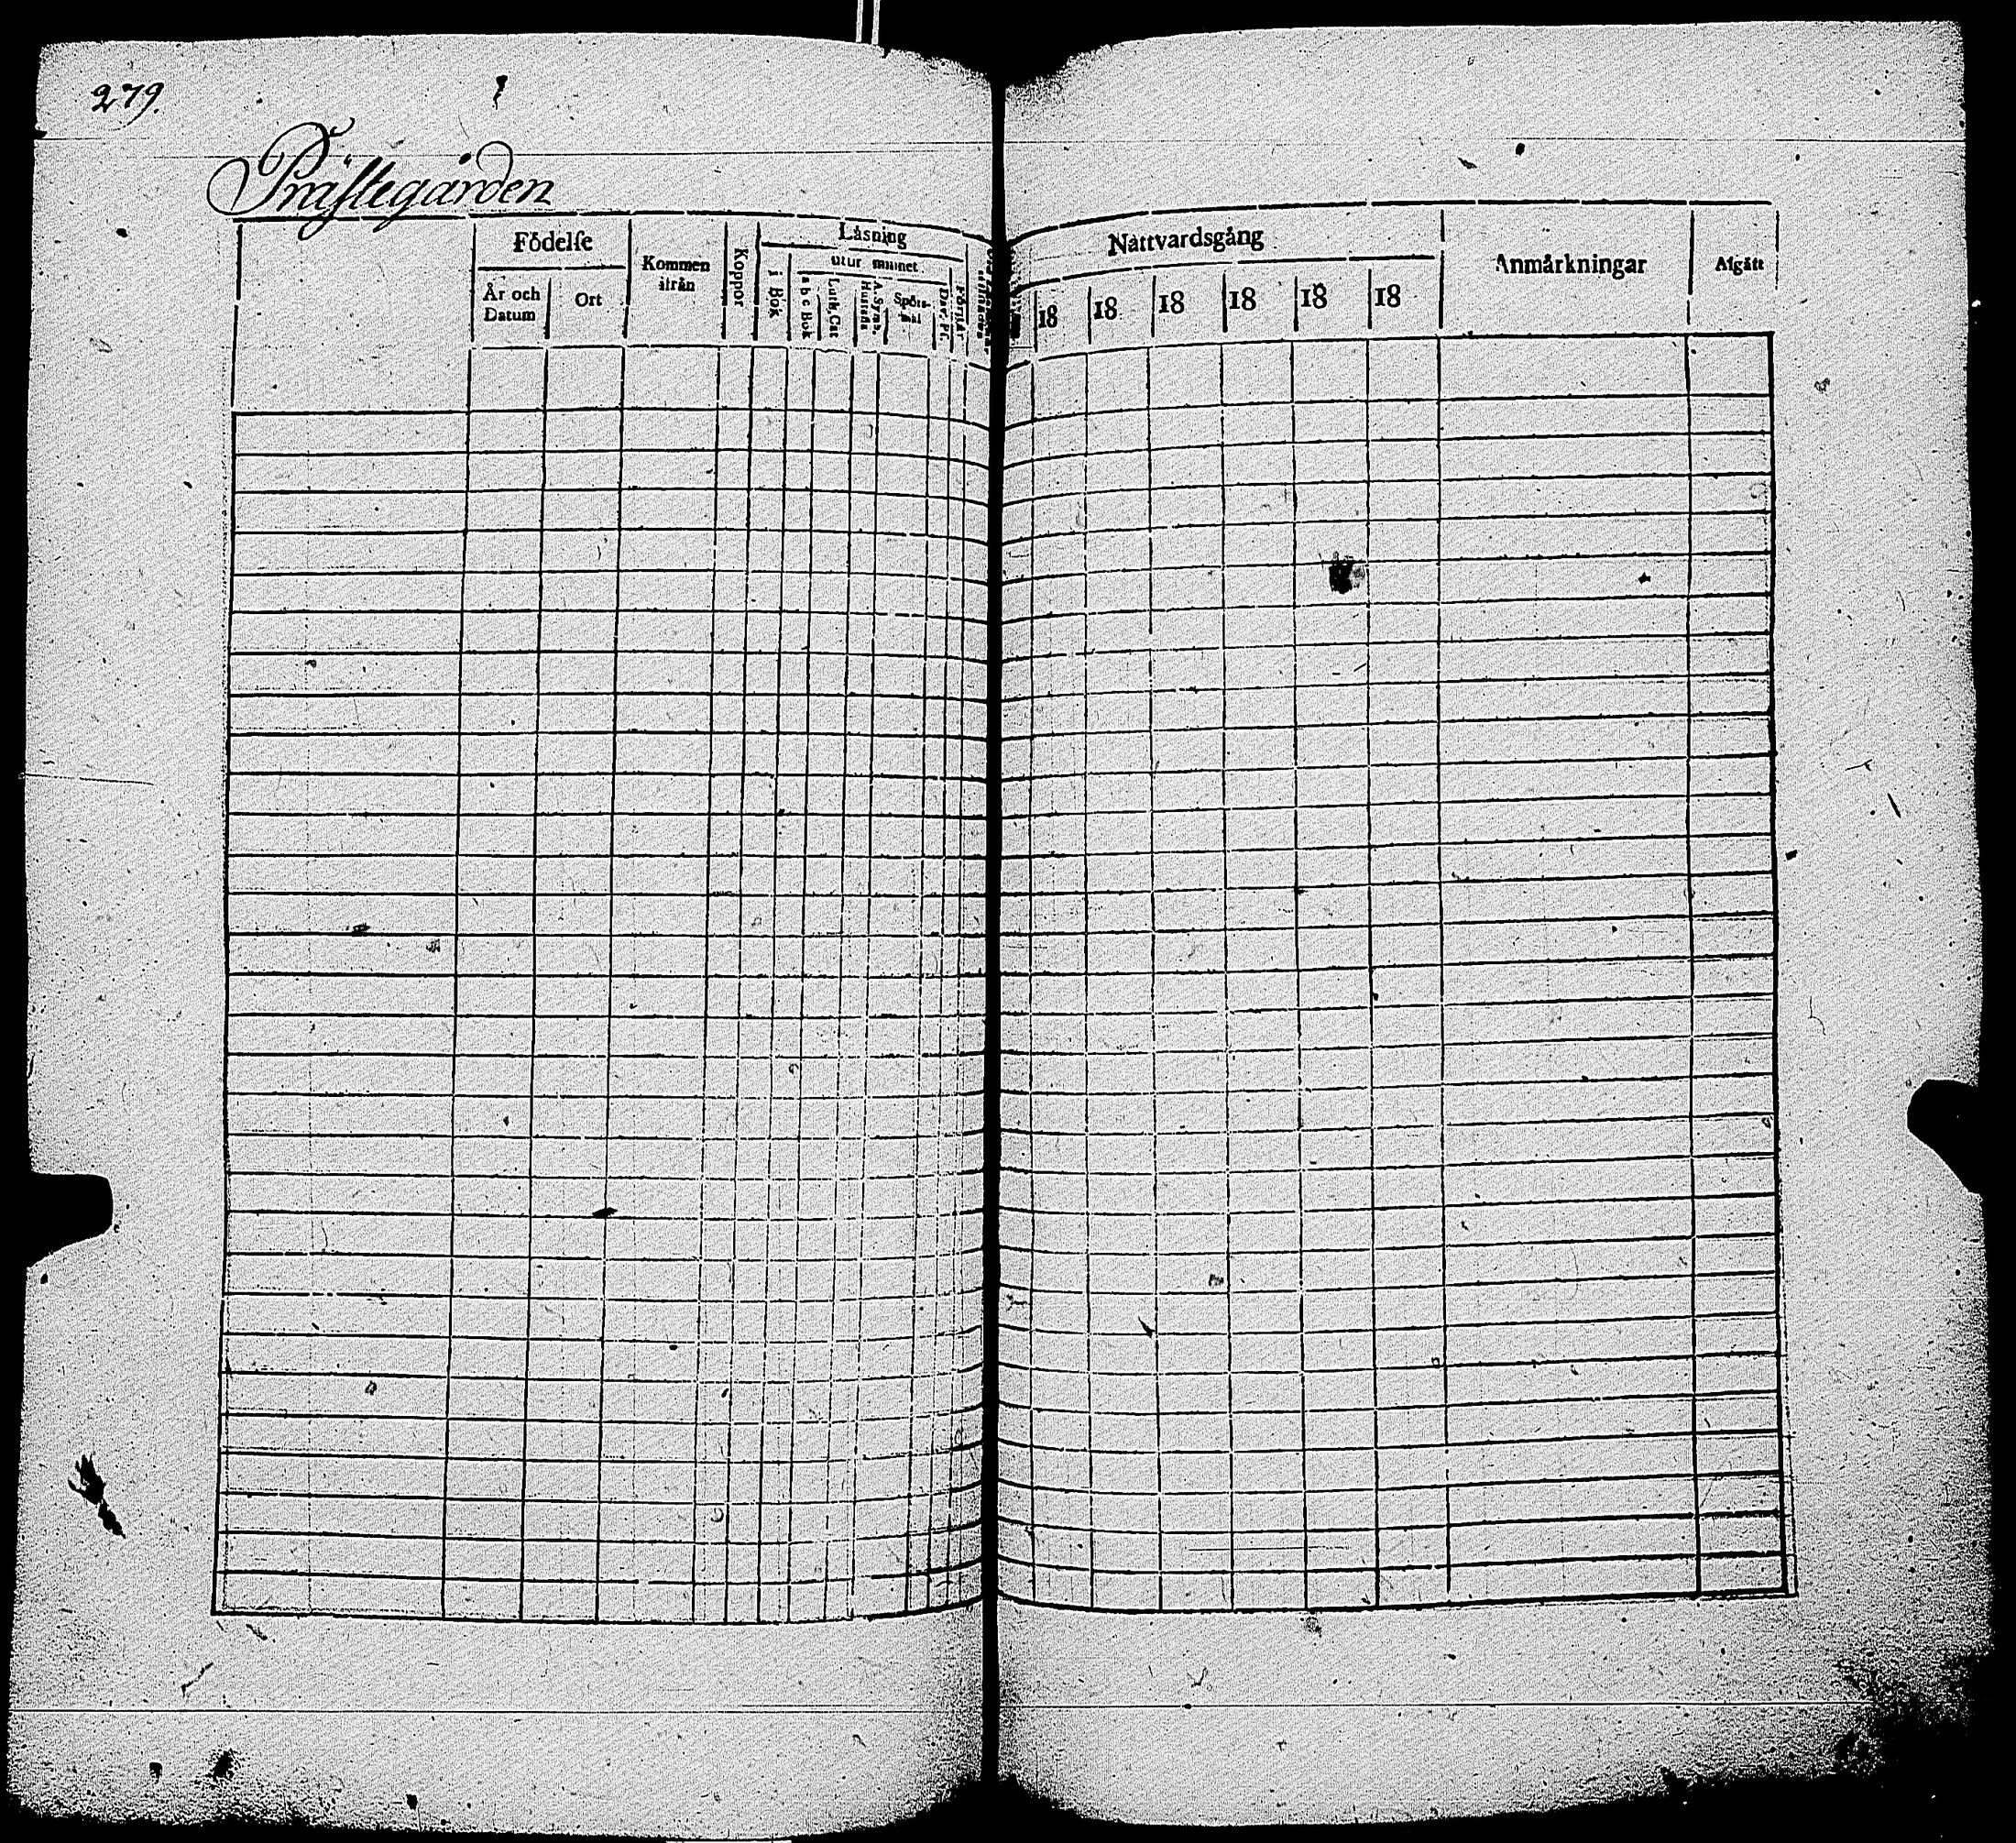 279.
Präſtegården
Födelſe
År och Datum
Ort
Kommen ifrån
Koppor
Läsning
i Bok
utur minnet
a b c Bok
Luth. Cat
A. Symb. Huſtafl.
Spörs-mål
Dav. Pſ.
Förſtår
Nattvardsgång
18 18 18 18 18 18
Anmårkningar
Afgått